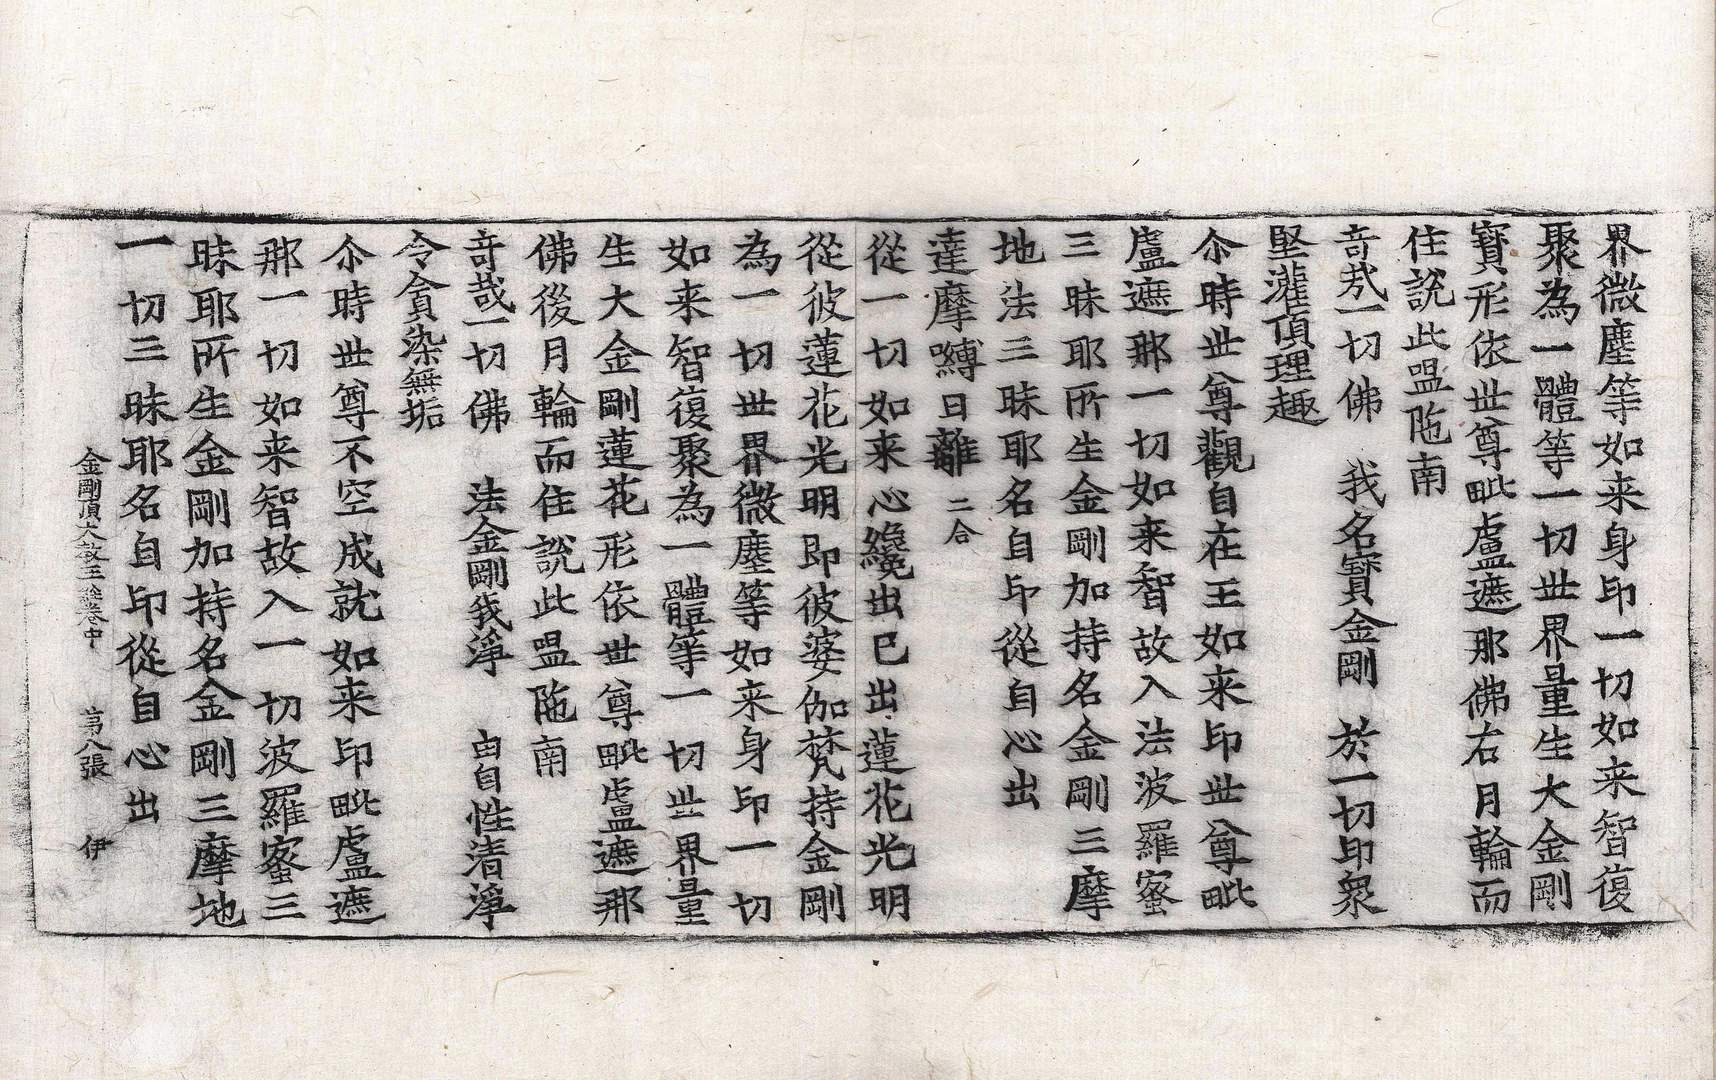 界微塵等如来身印一切如来智復
聚為一體等一切世界量生大金剛
寶形依世尊毗盧遮那佛右月輪而
住說此嗢陁南
竒㢤一切佛　我名寶金剛　於一切印衆
堅灌頂理趣
尒時世尊觀自在王如来印世尊毗
盧遮那一切如来智故入法波羅蜜
三昧耶所生金剛加持名金剛三摩
地法三昧耶名自印從自心出
達摩嚩日離二合
從一切如来心纔出已出蓮花光明
從彼蓮花光明即彼婆伽梵持金剛
為一切世界微塵等如来身印一切
如来智復聚為一體等一切世界量
生大金剛蓮花形依世尊毗盧遮那
佛後月輪而住說此嗢陁南
竒哉一切佛　法金剛我淨　由自性清淨
令貪染無垢
尒時世尊不空成就如来印毗盧遮
那一切如来智故入一切波羅蜜三
昧耶所生金剛加持名金剛三摩地
一切三昧耶名自印從自心出
金剛頂大教王經卷中　第八張　伊